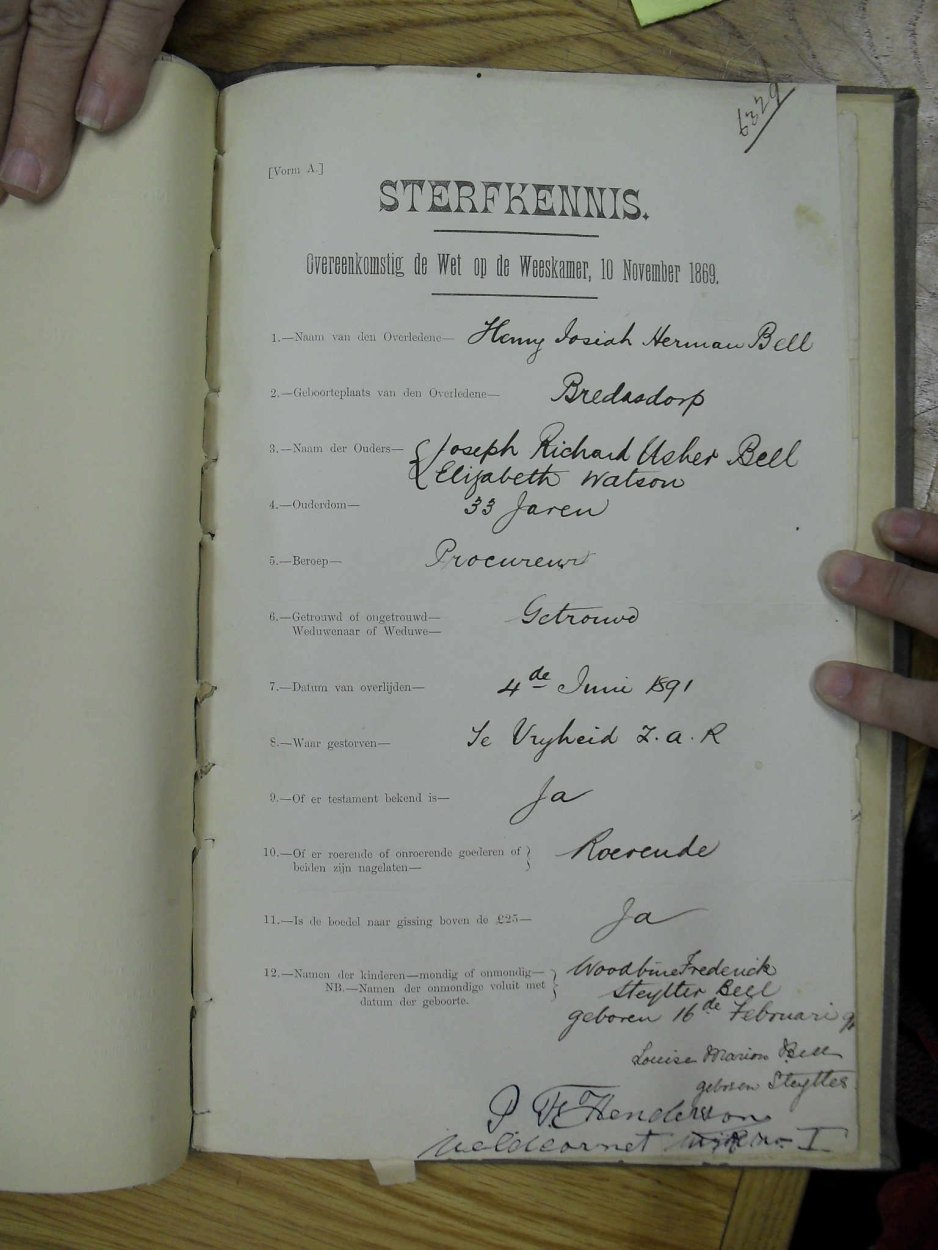 6329
[Vorm A.]
STERFKENNIS.
Overeenkomstig de Wet op de Weeskamer, 10 November 1869.
1.—Naam van den Overledene— Henry Josiah Herman Bell
2.—Geboorteplaats van den Overledene— Bredasdorp
3.—Naam der Ouders— { Joseph Richard Usher Bell
Elizabeth Watson
4.—Ouderdom— 33 Jaren
5.—Beroep— Procureur
6.—Getrouwd of ongetrouwd— Getrouwd
Weduwenaar of Weduwe—
7.—Datum van overlijden— 4de Juni 1891
8.—Waar gestorven— Te Vryheid Z.A.R
9.—Of er testament bekend is— Ja
10.—Of er roerende of onroerende goederen of } Roerende
beiden zijn nagelaten—
11.—Is de boedel naar gissing boven de £25— Ja
12.—Namen der kinderen—mondig of onmondig— } Woodbine Frederick
NB.—Namen der onmondige voluit met Steytler Bell
datum der geboorte. geboren 16de Februari
Louise Marion Bell
geboren Steytler
Henderson
Veldcornet No. I